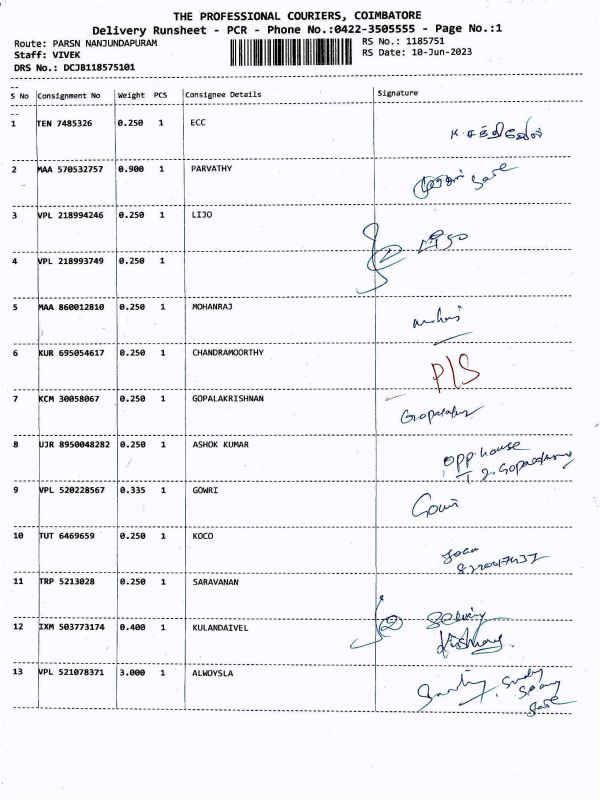 THE PROFESSIONAL COURIERS, COIMBATORE
Delivery Runsheet - PCR - Phone No.:0422-3505555 - Page No.:1
Route: PARSN NANJUNDAPURAM
RS No.: 1185751
Staff: VIVEK
RS Date: 10-Jun-2023
DRS No.: DCJB118575101
S No Consignment No Weight PCS Consignee Details Signature
1 TEN 7485326 0.250 1 ECC க.சக்திவேல்
2 MAA 570532757 0.900 1 PARVATHY
3 VPL 218994246 0.250 1 LIJO
4 VPL 218993749 0.250 1
5 MAA 860012810 0.250 1 MOHANRAJ
6 KUR 695054617 0.250 1 CHANDRAMOORTHY P/S
7 KCM 30058067 0.250 1 GOPALAKRISHNAN
8 UJR 8950048282 0.250 1 ASHOK KUMAR opp.house
9 VPL 520228567 0.335 1 GOWRI Gowri
10 TUT 6469659 0.250 1 KOCO
11 TRP 5213028 0.250 1 SARAVANAN
12 IXM 503773174 0.400 1 KULANDAIVEL
13 VPL 521078371 3.000 1 ALWOYSLA